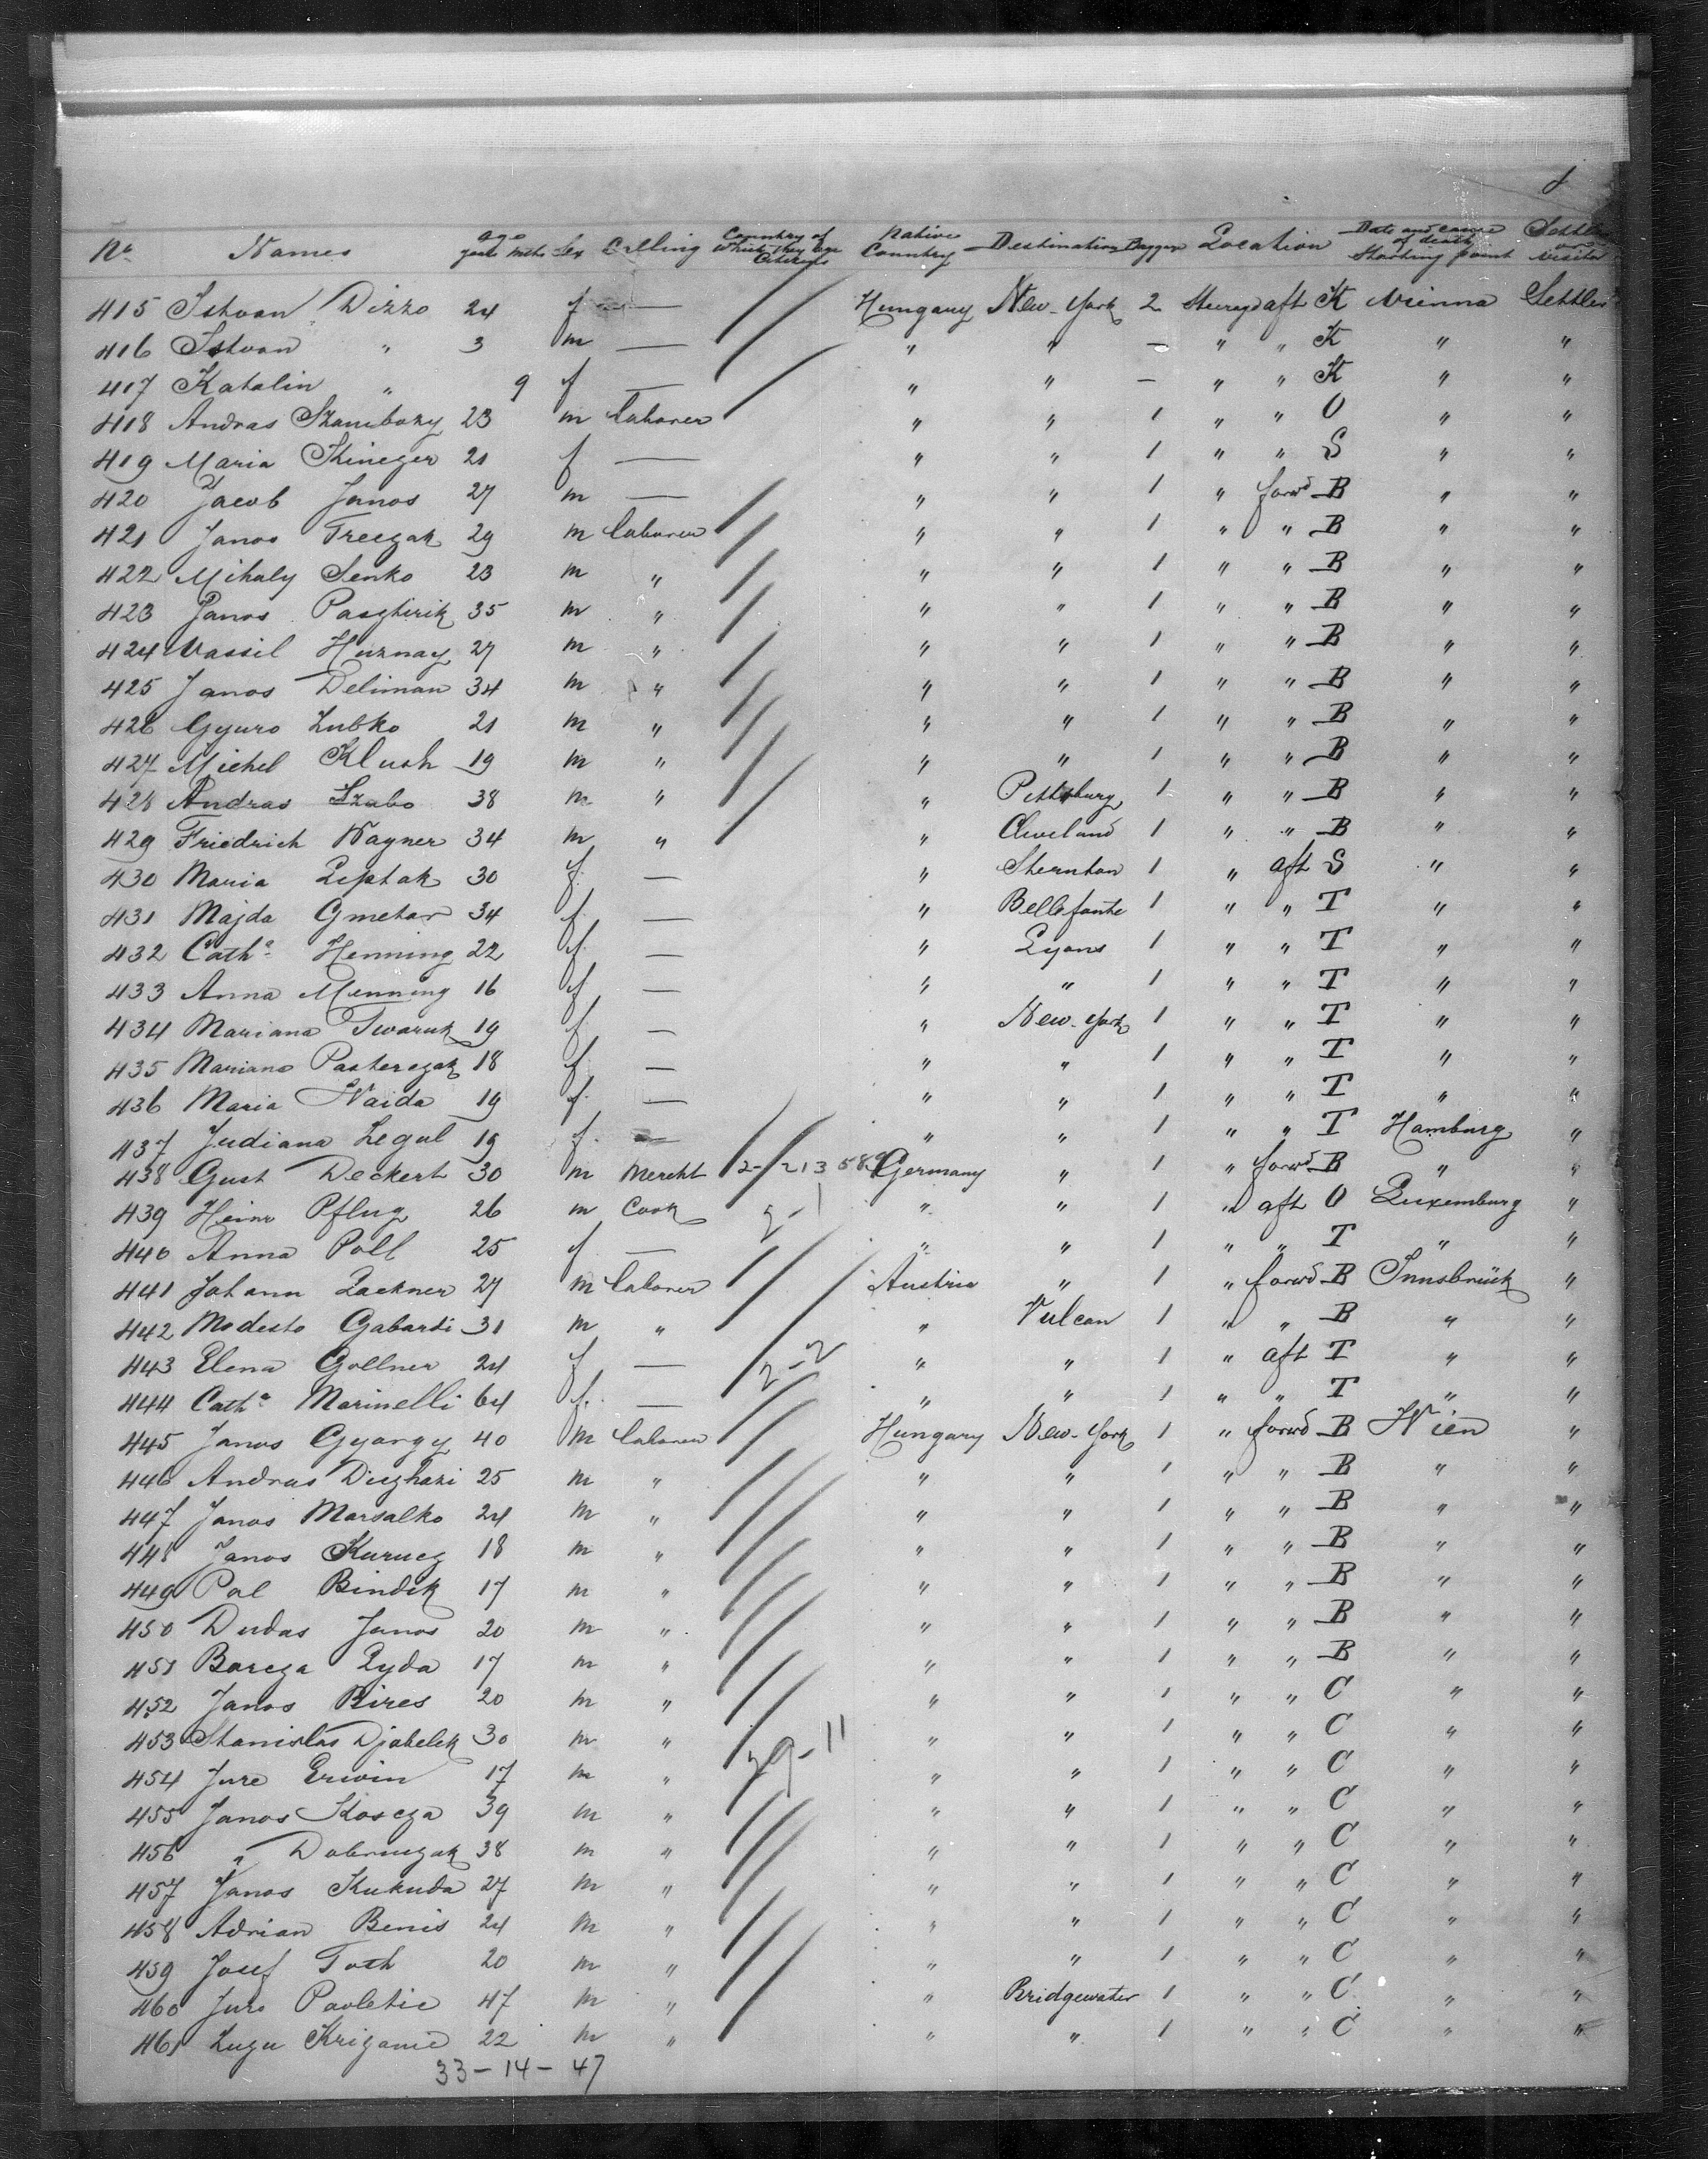 No Names age years mths Sex Calling Country of Which they are Citizens Native Country Destination Baggage Location Date and cause of death Starting point Settler or visitor
415 Istvan Dizzo 24 f — Hungary New-York 2 aft K Vienna Settler
416 Istvan " 3 m — " " – " " K " "
417 Katalin " 9 f — " " – " " K " "
418 Andras 23 m laborer " " 1 " " O " "
419 Maria 21 f — " " 1 " " S " "
420 Jacob Janos 27 m — " " 1 " forwd B " "
421 Janos Treczak 29 m laborer " " 1 " " B " "
422 Mihaly Senko 23 m " " " 1 " " B " "
423 Janos 35 m " " " 1 " " B " "
424 Vassil Huznay 27 m " " " 1 " " B " "
425 Janos Deliman 34 m " " " 1 " " B " "
426 Gyuro Zubko 21 m " " " 1 " " B " "
427 Michel Klush 19 m " " " 1 " " B " "
428 Andras Szabo 38 m " " Pittsburg 1 " " B " "
429 Friedrich Wagner 34 m " " Cleveland 1 " " B " "
430 Maria Liptak 30 f — " 1 " aft S " "
431 Majda Gmetar 34 f — " Bellefonte 1 " " T " "
432 Catha Henning 22 f. — " Lyons 1 " " T " "
433 Anna Menning 16 f — " " 1 " " T " "
434 Mariana Twaruk 19 f — " New-York 1 " " T " "
435 Mariana Pasterczak 18 f — " " 1 " " T " "
436 Maria Naida 19 f — " " 1 " " T " "
437 Judiana Legul 19 f. — " " 1 " " T Hamburg "
438 Gust Deckert 30 m Mercht 2- 213589 Germany " 1 " forwd B " "
439 Heinr Pflug 26 m Cook 2-1 " " 1 " aft O Luxemburg "
440 Anna Poll 25 f — " " 1 " " T " "
441 Johann Lackner 27 m laborer Austria " 1 " forwd B Innsbrück "
442 Modesto Gabardi 31 m " " Vulcan 1 " " B " "
443 Elena Gollner 24 f — 2-2 " " 1 " aft T " "
444 Catha Marinelli 64 f. — " " 1 " " T " "
445 Janos Gyorgy 40 m laborer Hungary New-York 1 " forwd B Wien "
446 Andras 25 m " " " 1 " " B " "
447 Janos Marsalko 24 m " " " 1 " " B " "
448 Janos Kurucz 18 m " " " 1 " " B " "
449 Pal Bindik 17 m " " " 1 " " B " "
450 Dudas Janos 20 m " " " 1 " " B " "
451 Barcza Lyda 17 m " " " 1 " " B " "
452 Janos Bires 20 m " " " 1 " " C " "
453 Stanislas Djabelek 30 m " " " 1 " " C " "
454 Jure Erwin 17 m " 29-11 " " 1 " " C " "
455 Janos Koscza 39 m " " " 1 " " C " "
456 " Dobruczak 38 m " " " 1 " " C " "
457 Janos Kukuda 27 m " " " 1 " " C " "
458 Adrian Benis 24 m " " " 1 " " C " "
459 Josef Toth 20 m " " " 1 " " C " "
460 Juro Pavletic 47 m " " Bridgewater 1 " " C " "
461 Kriganic 22 m " " " 1 " " C " "
33-14-47